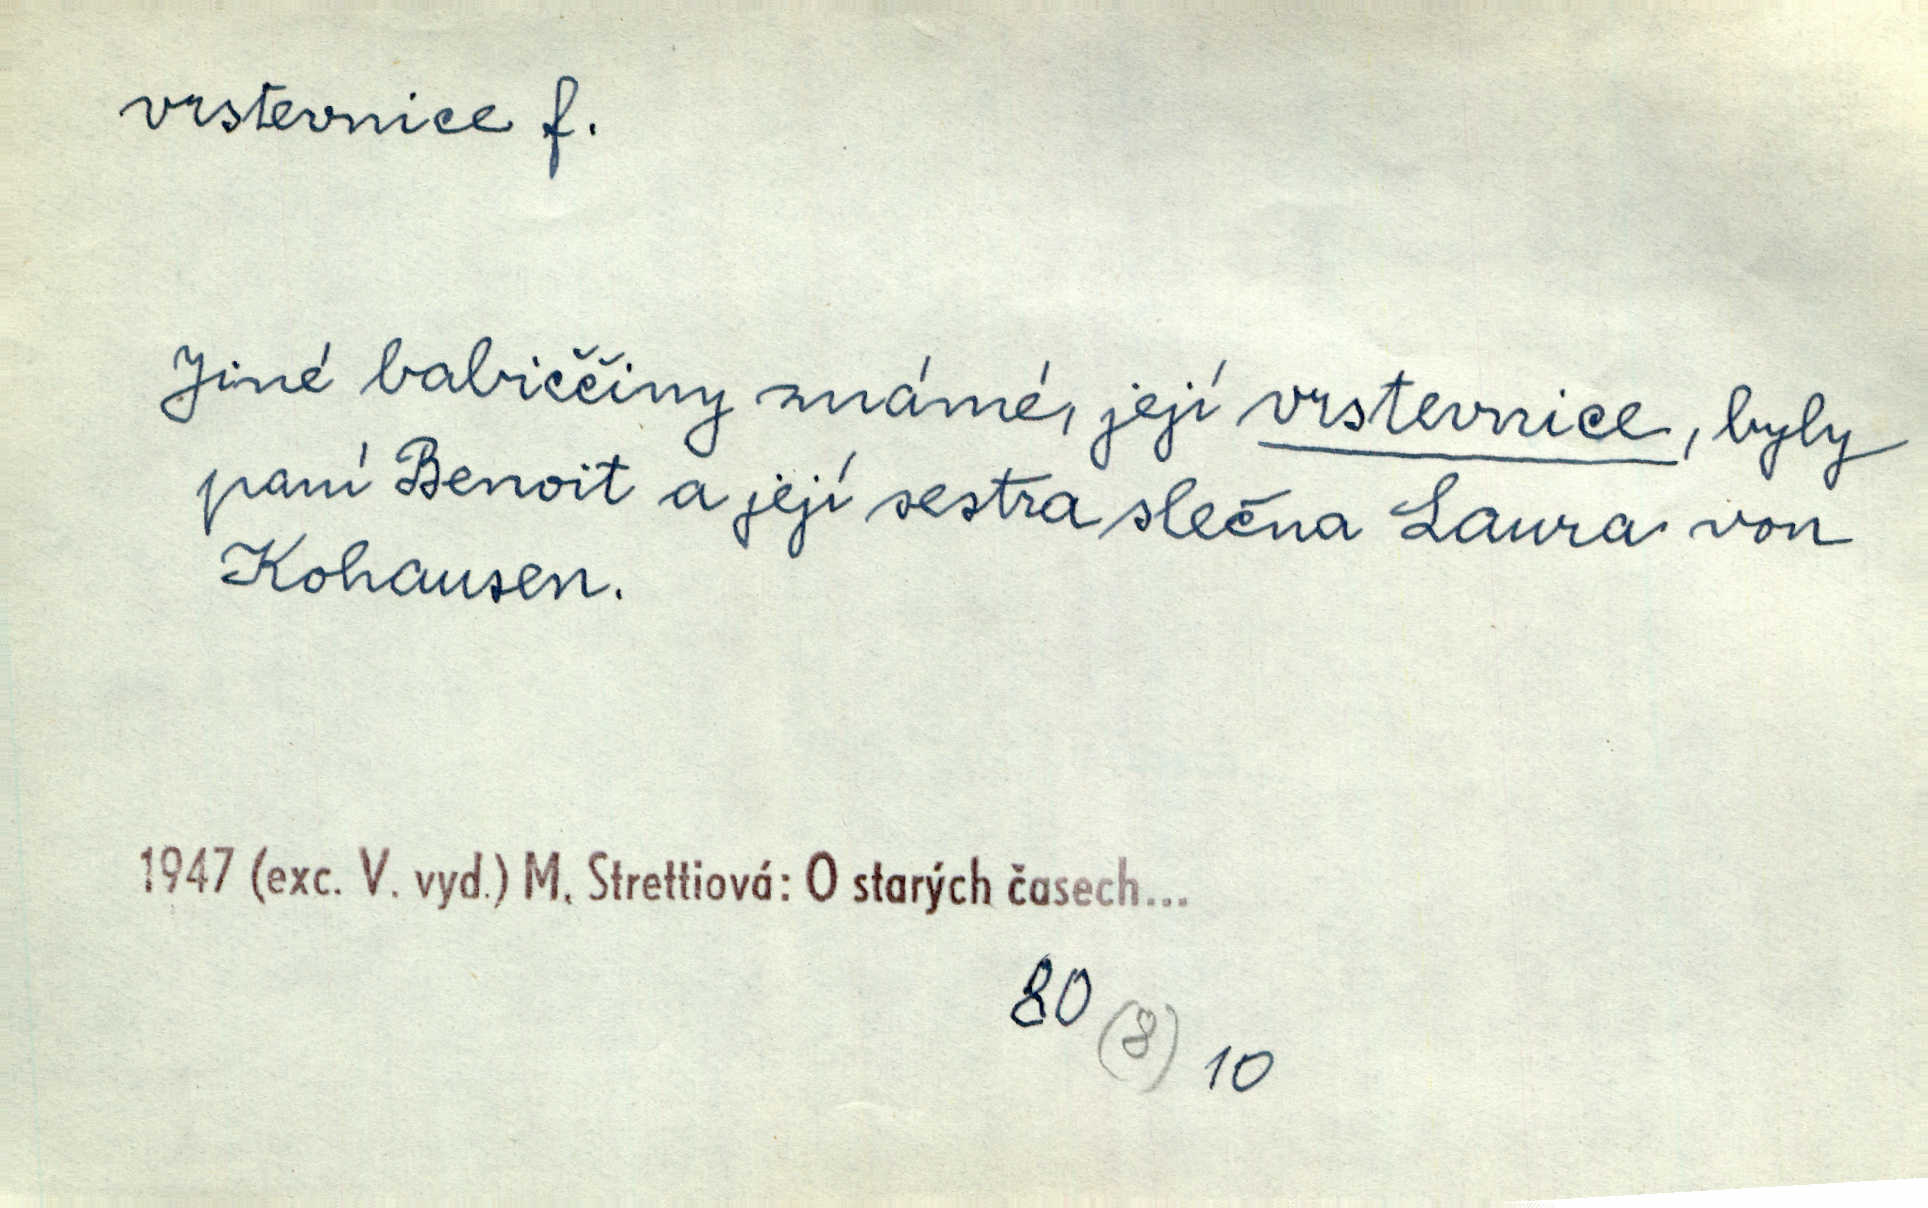 vrstevnice f.
Jiné babiččiny známé, její vrstevnice, byly
paní Benoit a její sestra slečna Laura von
Kohausen.
1947 (exc. V. vyd.) M. Strettiová: O starých časech...
80 (8) 10